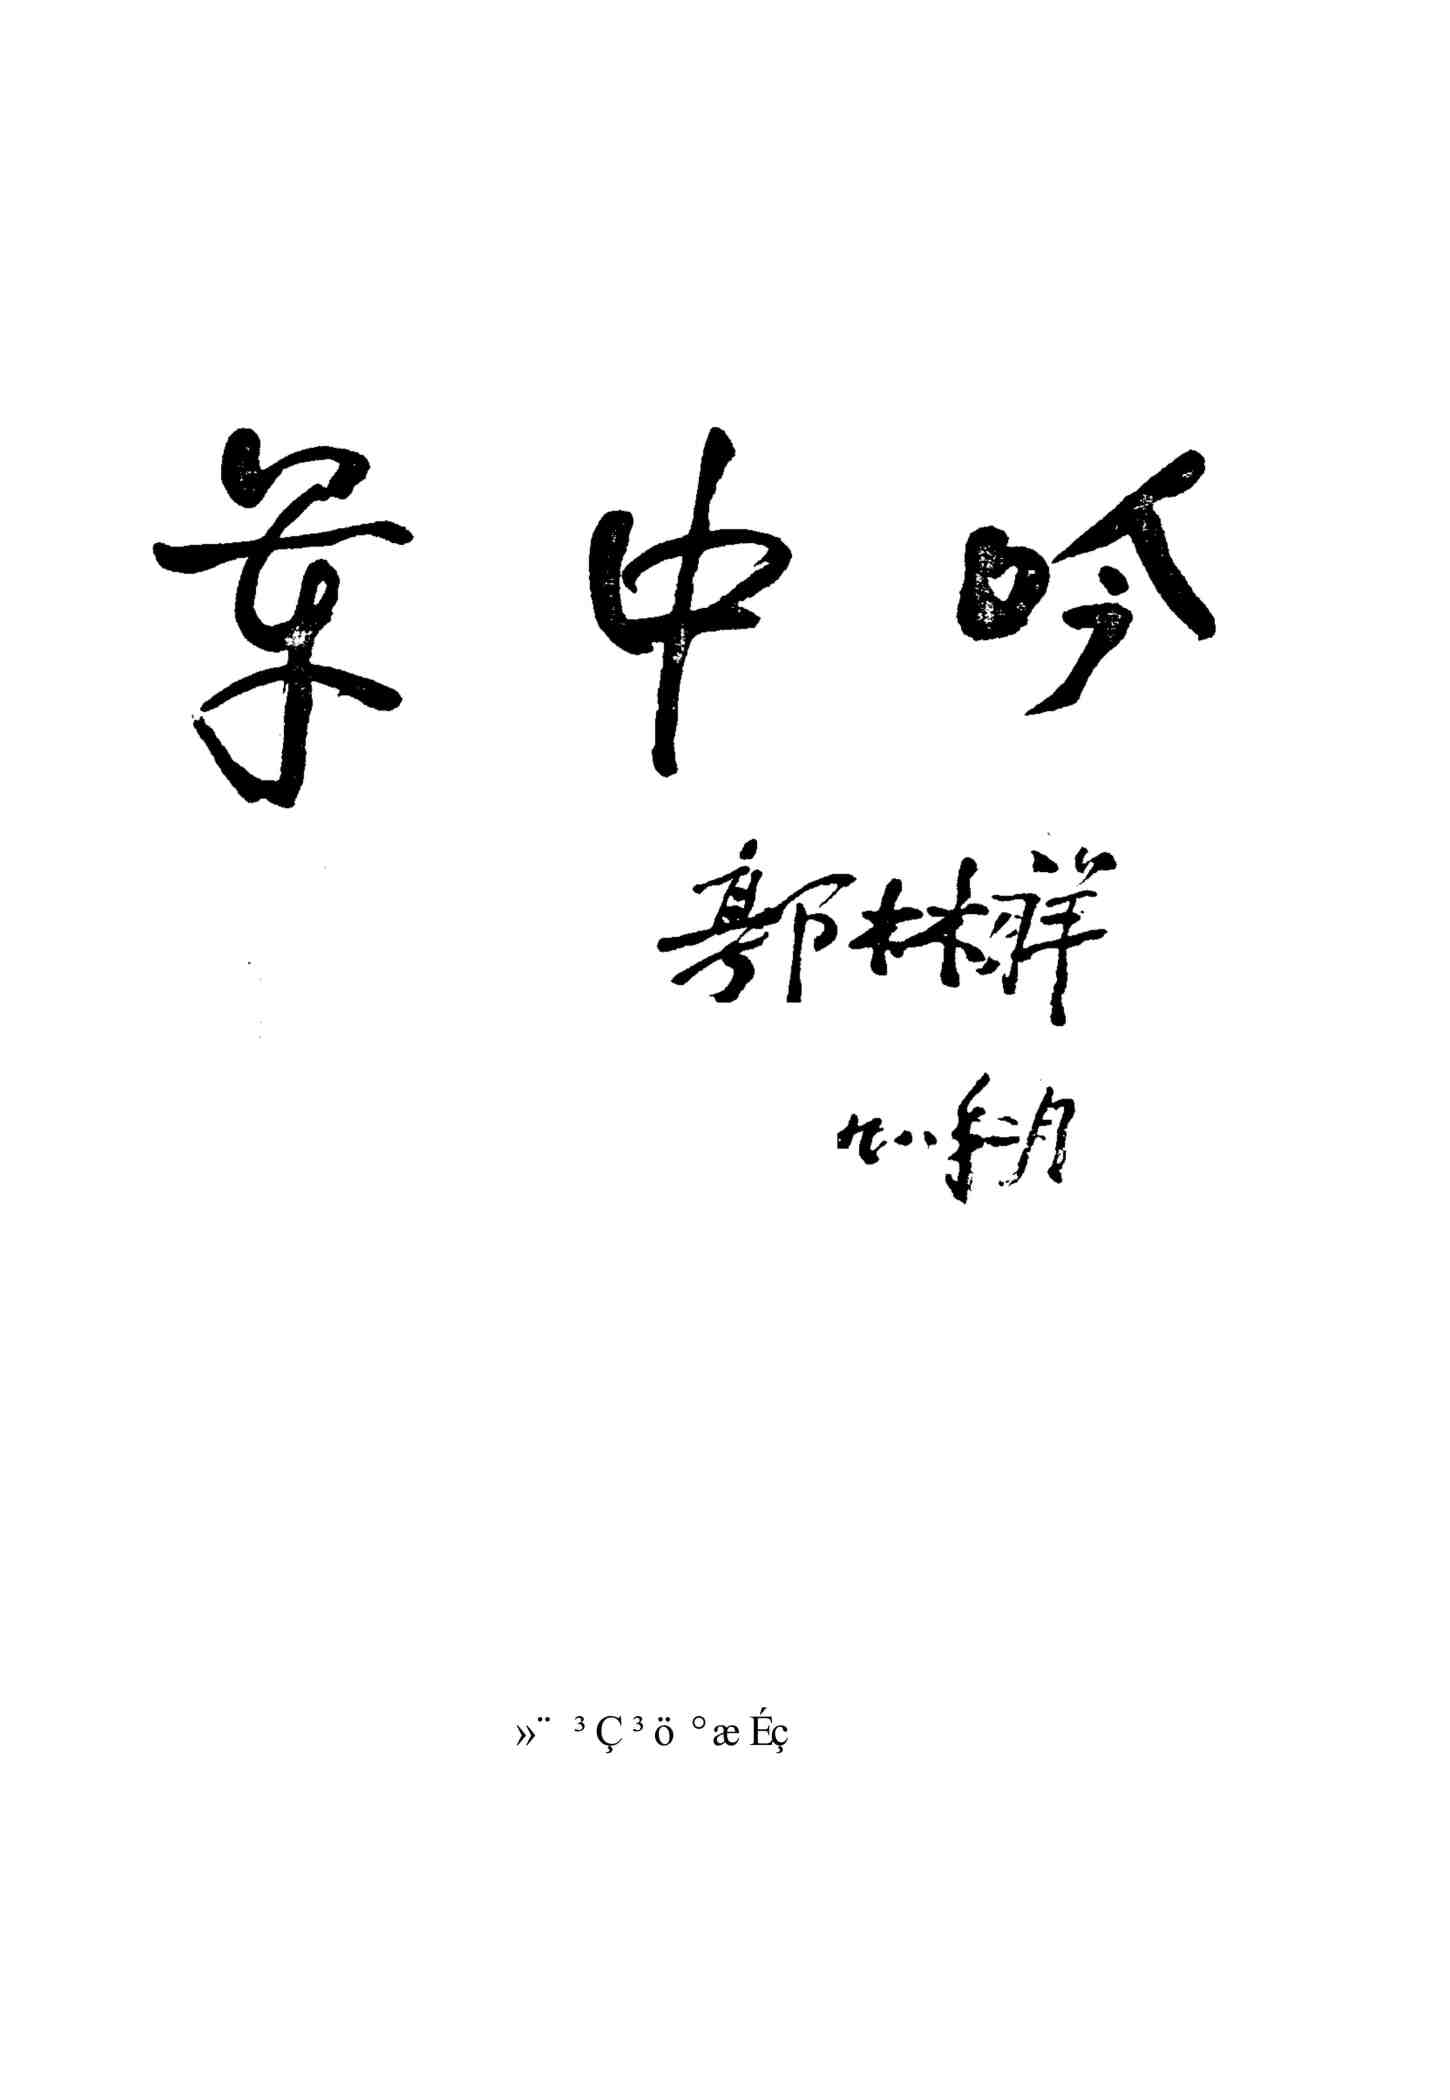 军中吟
郭林祥
»¨ ³Ç³ö °æÉç